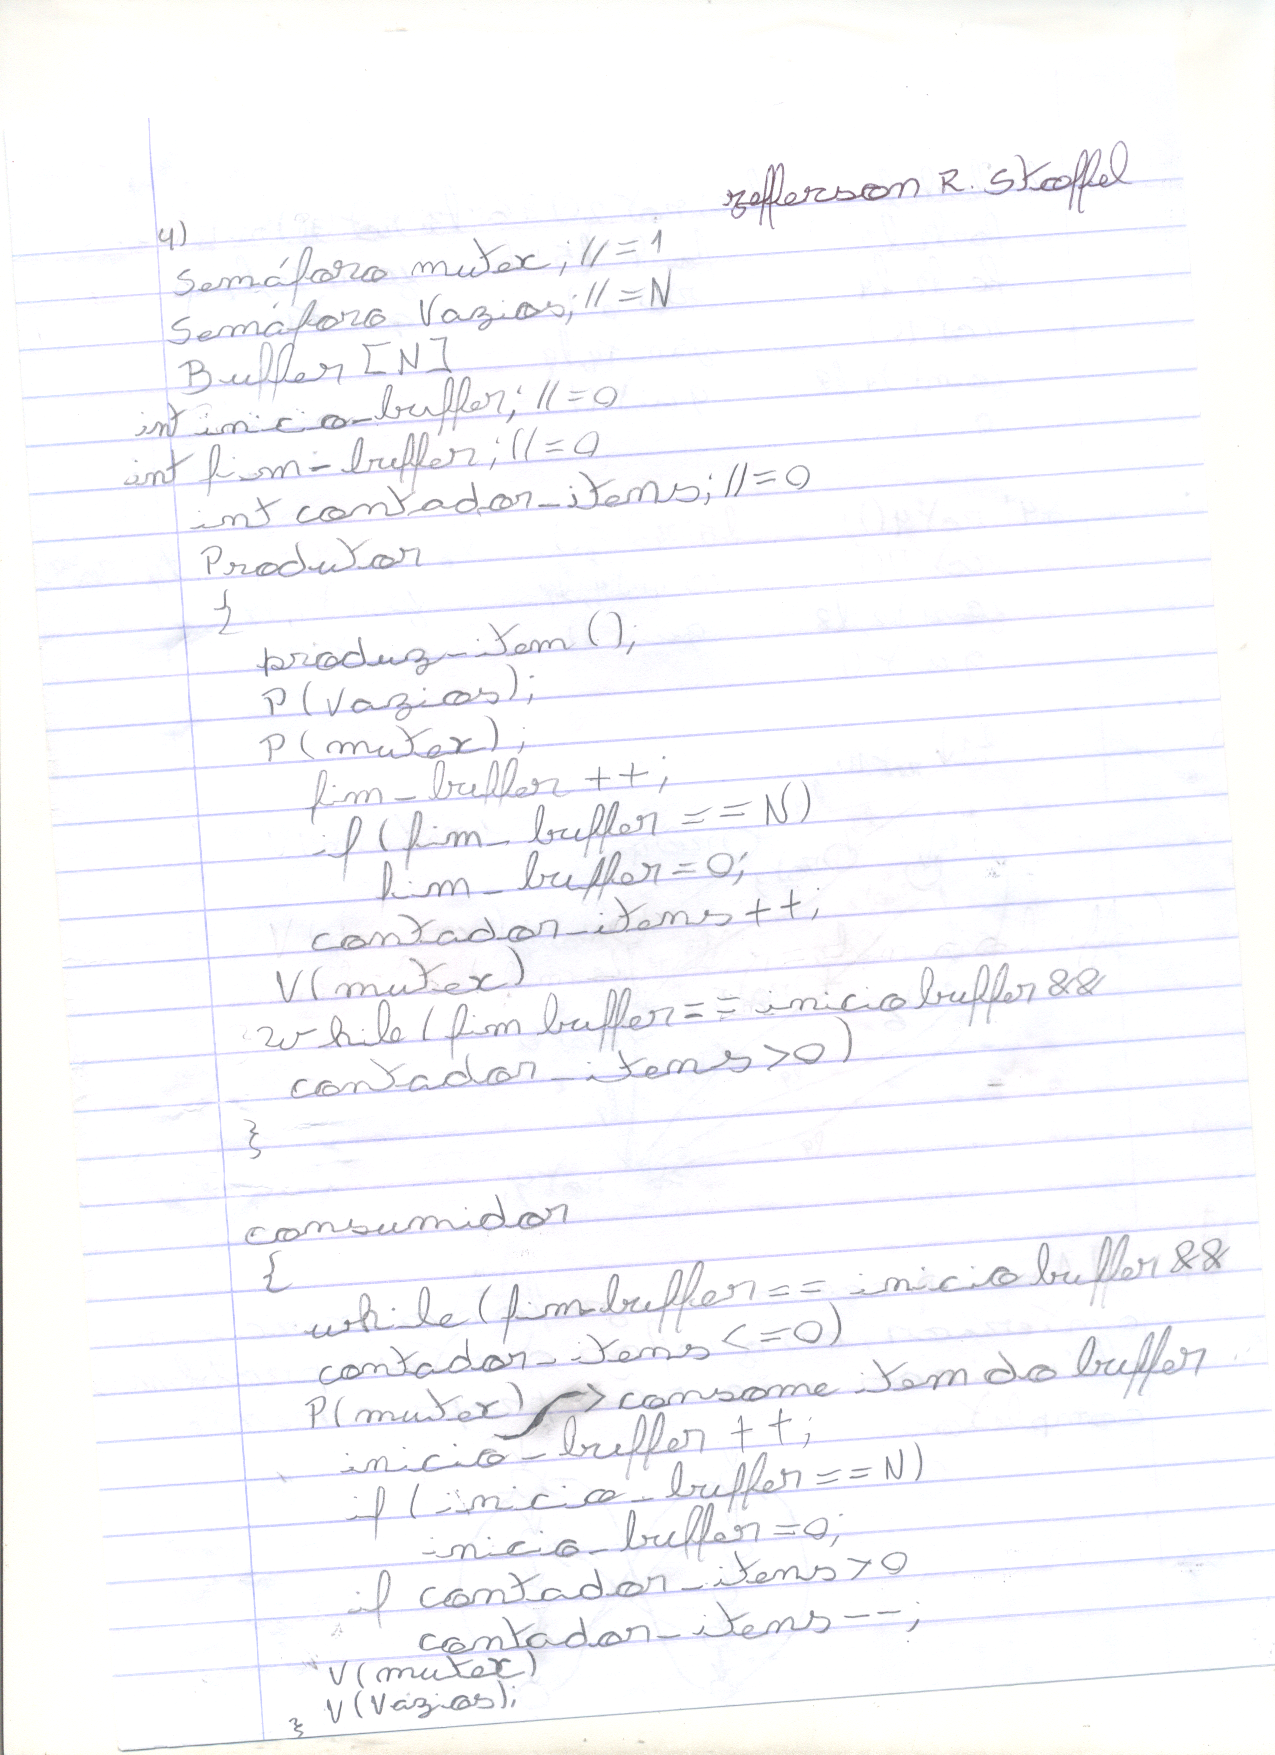 Jefferson R. Stoffel
4)
Semáforo mutex; // = 1
Semáforo Vazios; // = N
Buffer [N]
int inicio_buffer; // = 0
int fim_buffer; // = 0
int contador_itens; // = 0
Produtor
{
produz_item ();
P(Vazios);
P(mutex);
fim_buffer ++;
if (fim_buffer == N)
fim_buffer = 0;
contador_itens ++;
V(mutex)
while (fim buffer == inicio buffer &&
contador_itens > 0)
}
consumidor
{
while (fim_buffer == inicio buffer &&
contador_itens <= 0)
P(mutex) → consome item do buffer
inicio_buffer ++;
if (inicio_buffer == N)
inicio_buffer = 0;
if contador_itens > 0
contador_itens --;
V(mutex)
V(Vazios);
}